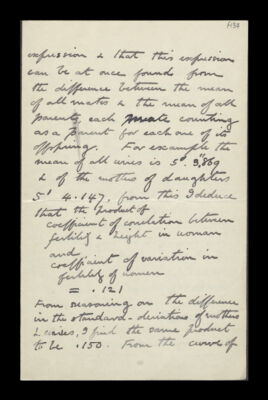 expression & that this expression
can be at once found from
the difference between the mean
of all mates & the mean of all
parents, each mate counting
as a parent for each one of its
offspring. For example the
mean of all wives is 5' 3".869
& of the mothers of daughters
5' 4.147, from this I deduce
that the product of
coefficient of correlation between
fertility & height in woman
and
coefficient of variation in
fertility of women
= .121
From reasoning on the difference
in the standard-deviations of mothers
& wives, I find the same product
to be .150. From the curve of